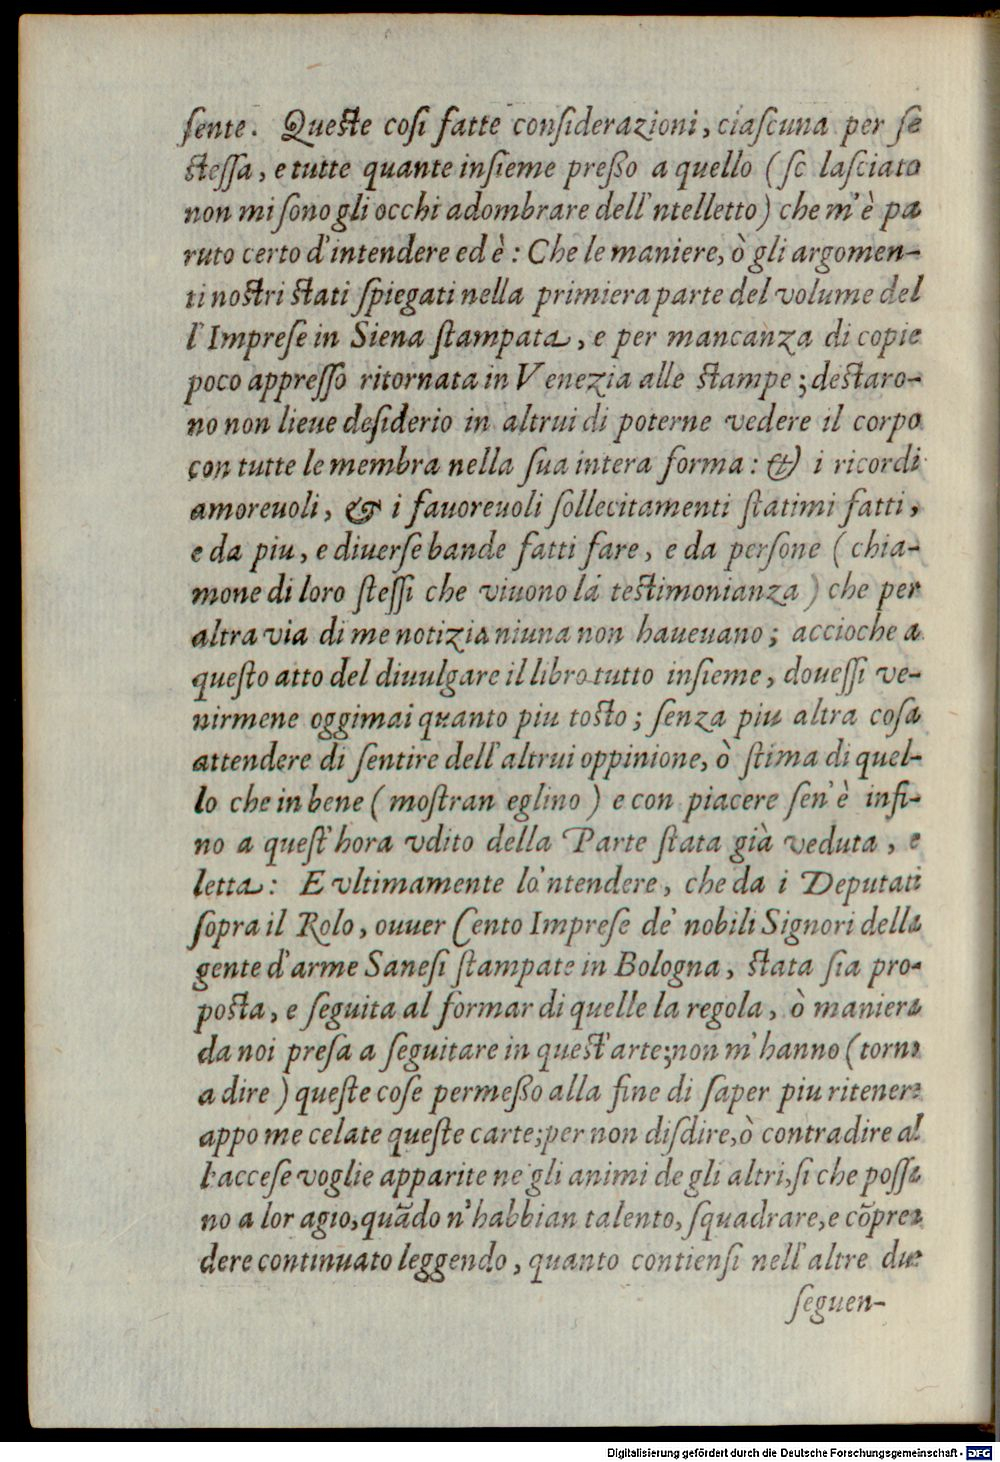 ſente. Queſte coſi fatte conſiderazioni, ciaſcuna per ſe
ſteſſa, e tutte quante inſieme preßo a quello (ſe laſciato
non mi ſono gli occhi adombrare dell'ntelletto) che m'è pa
ruto certo d'intendere ed è: Che le maniere, ò gli argomen-
ti noſtri ſtati ſpiegati nella primiera parte del volume del
l'Impreſe in Siena ſtampata, e per mancanza di copie
poco appreſſo ritornata in Venezia alle ſtampe; deſtaro-
no non lieue deſiderio in altrui di poterne vedere il corpo
con tutte le membra nella ſua intera forma: & i ricordi
amoreuoli, & i fauoreuoli ſollecitamenti ſtatimi fatti,
e da piu, e diuerſe bande fatti fare, e da perſone (chia-
mone di loro ſteſſi che viuono là teſtimonianza) che per
altra via di me notizia niuna non haueuano; accioche a
queſto atto del diuulgare il libro tutto inſieme, doueſſi ve-
nirmene oggimai quanto piu toſto; ſenza piu altra coſa
attendere di ſentire dell'altrui oppinione, ò ſtima di quel-
lo che in bene (moſtran eglino) e con piacere ſen'è infi-
no a queſt'hora vdito della Parte ſtata già veduta, e
letta: E vltimamente lo'ntendere, che da i Deputati
ſopra il Rolo, ouuer Cento Impreſe de' nobili Signori della
gente d'arme Saneſi ſtampate in Bologna, ſtata ſia pro-
poſta, e ſeguita al formar di quelle la regola, ò maniera
da noi preſa a ſeguitare in queſt'arte; non m'hanno (torno
a dire) queſte coſe permeßo alla fine di ſaper piu ritenere
appo me celate queſte carte; per non diſdire, ò contradire al
l'acceſe voglie apparite ne gli animi de gli altri, ſi che poſſa
no a lor agio, quãdo n'habbian talento, ſquadrare, e cõpren
dere continuato leggendo, quanto contienſi nell'altre due
ſeguen-
Digitalisierung gefördert durch die Deutsche Forschungsgemeinschaft - DFG